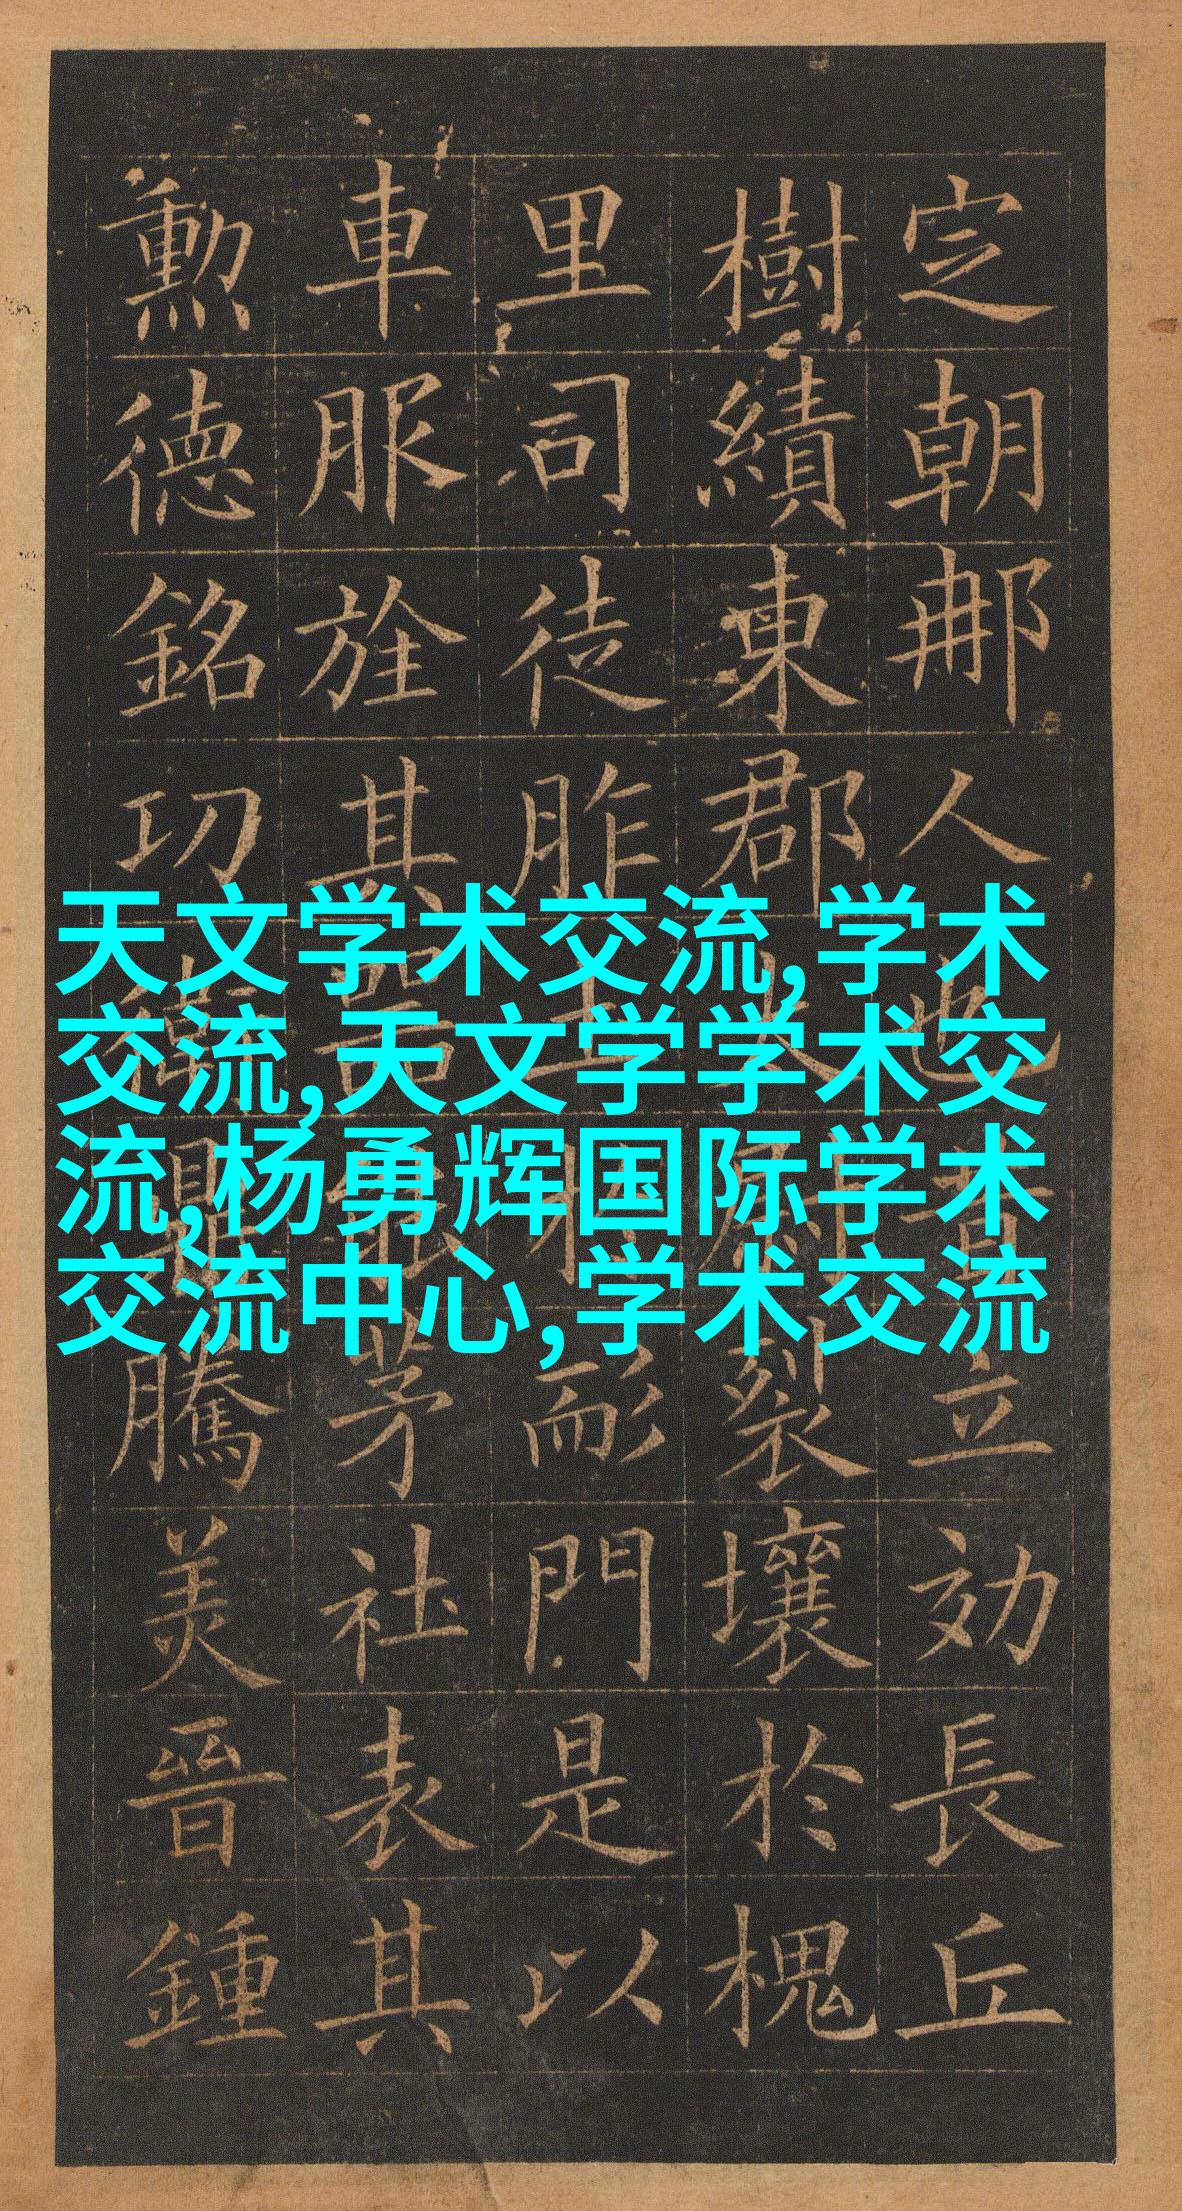 天文学术交流,学术
交流,天文学学术交
流,杨勇辉国际学术
交流中心,学术交流
定朝那人也昔立効長丘
樹績東郡太尉裂壤於槐
里司徒胙土於耏門是以
車服旌其器能茅社表其
勲德銘功衛鼎騰美晉鍾